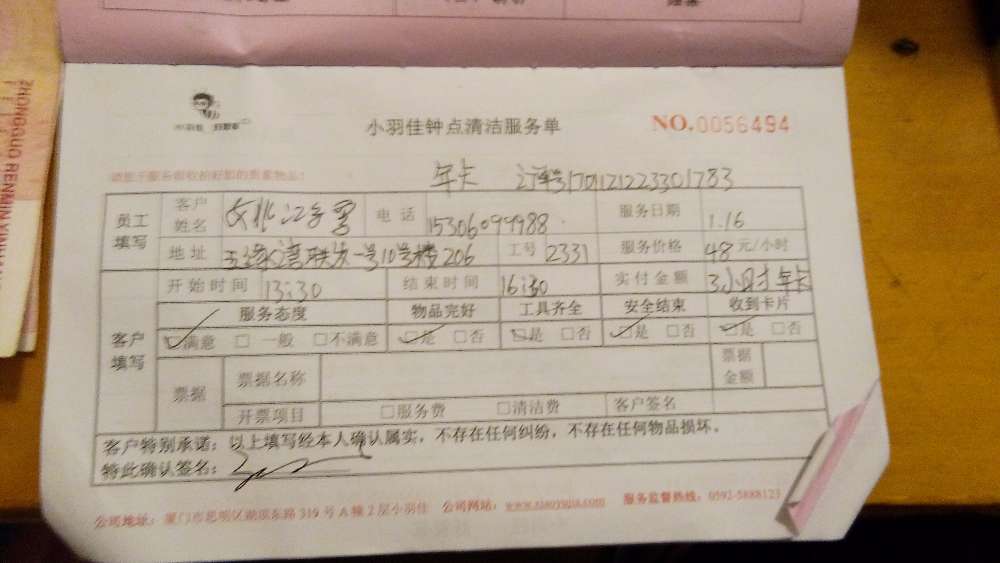 ZHONGGUO RENMIN YINHANG
小羽佳钟点清洁服务单 NO.0056494
年卡 订单号1701121223301783
员工填写 客户姓名 电话 15306099988 服务日期 1.16
地址 五缘湾联发一号10号楼206 工号 2331 服务价格 48元/小时
开始时间 13:30 结束时间 16:30 实付金额 3小时年卡
客户填写 服务态度 物品完好 工具齐全 安全结束 收到卡片
☑满意 □一般 □不满意 ☑是 □否 ☑是 □否 ☑是 □否 ☑是 □否
票据 票据名称 票据金额
开票项目 □服务费 □清洁费 客户签名
客户特别承诺：以上填写经本人确认属实，不存在任何纠纷，不存在任何物品损坏。
特此确认签名：
公司地址：厦门市思明区湖滨东路319号A幢2层小羽佳 公司网站：www.xiaoyujia.com 服务监督热线：0592-5888123